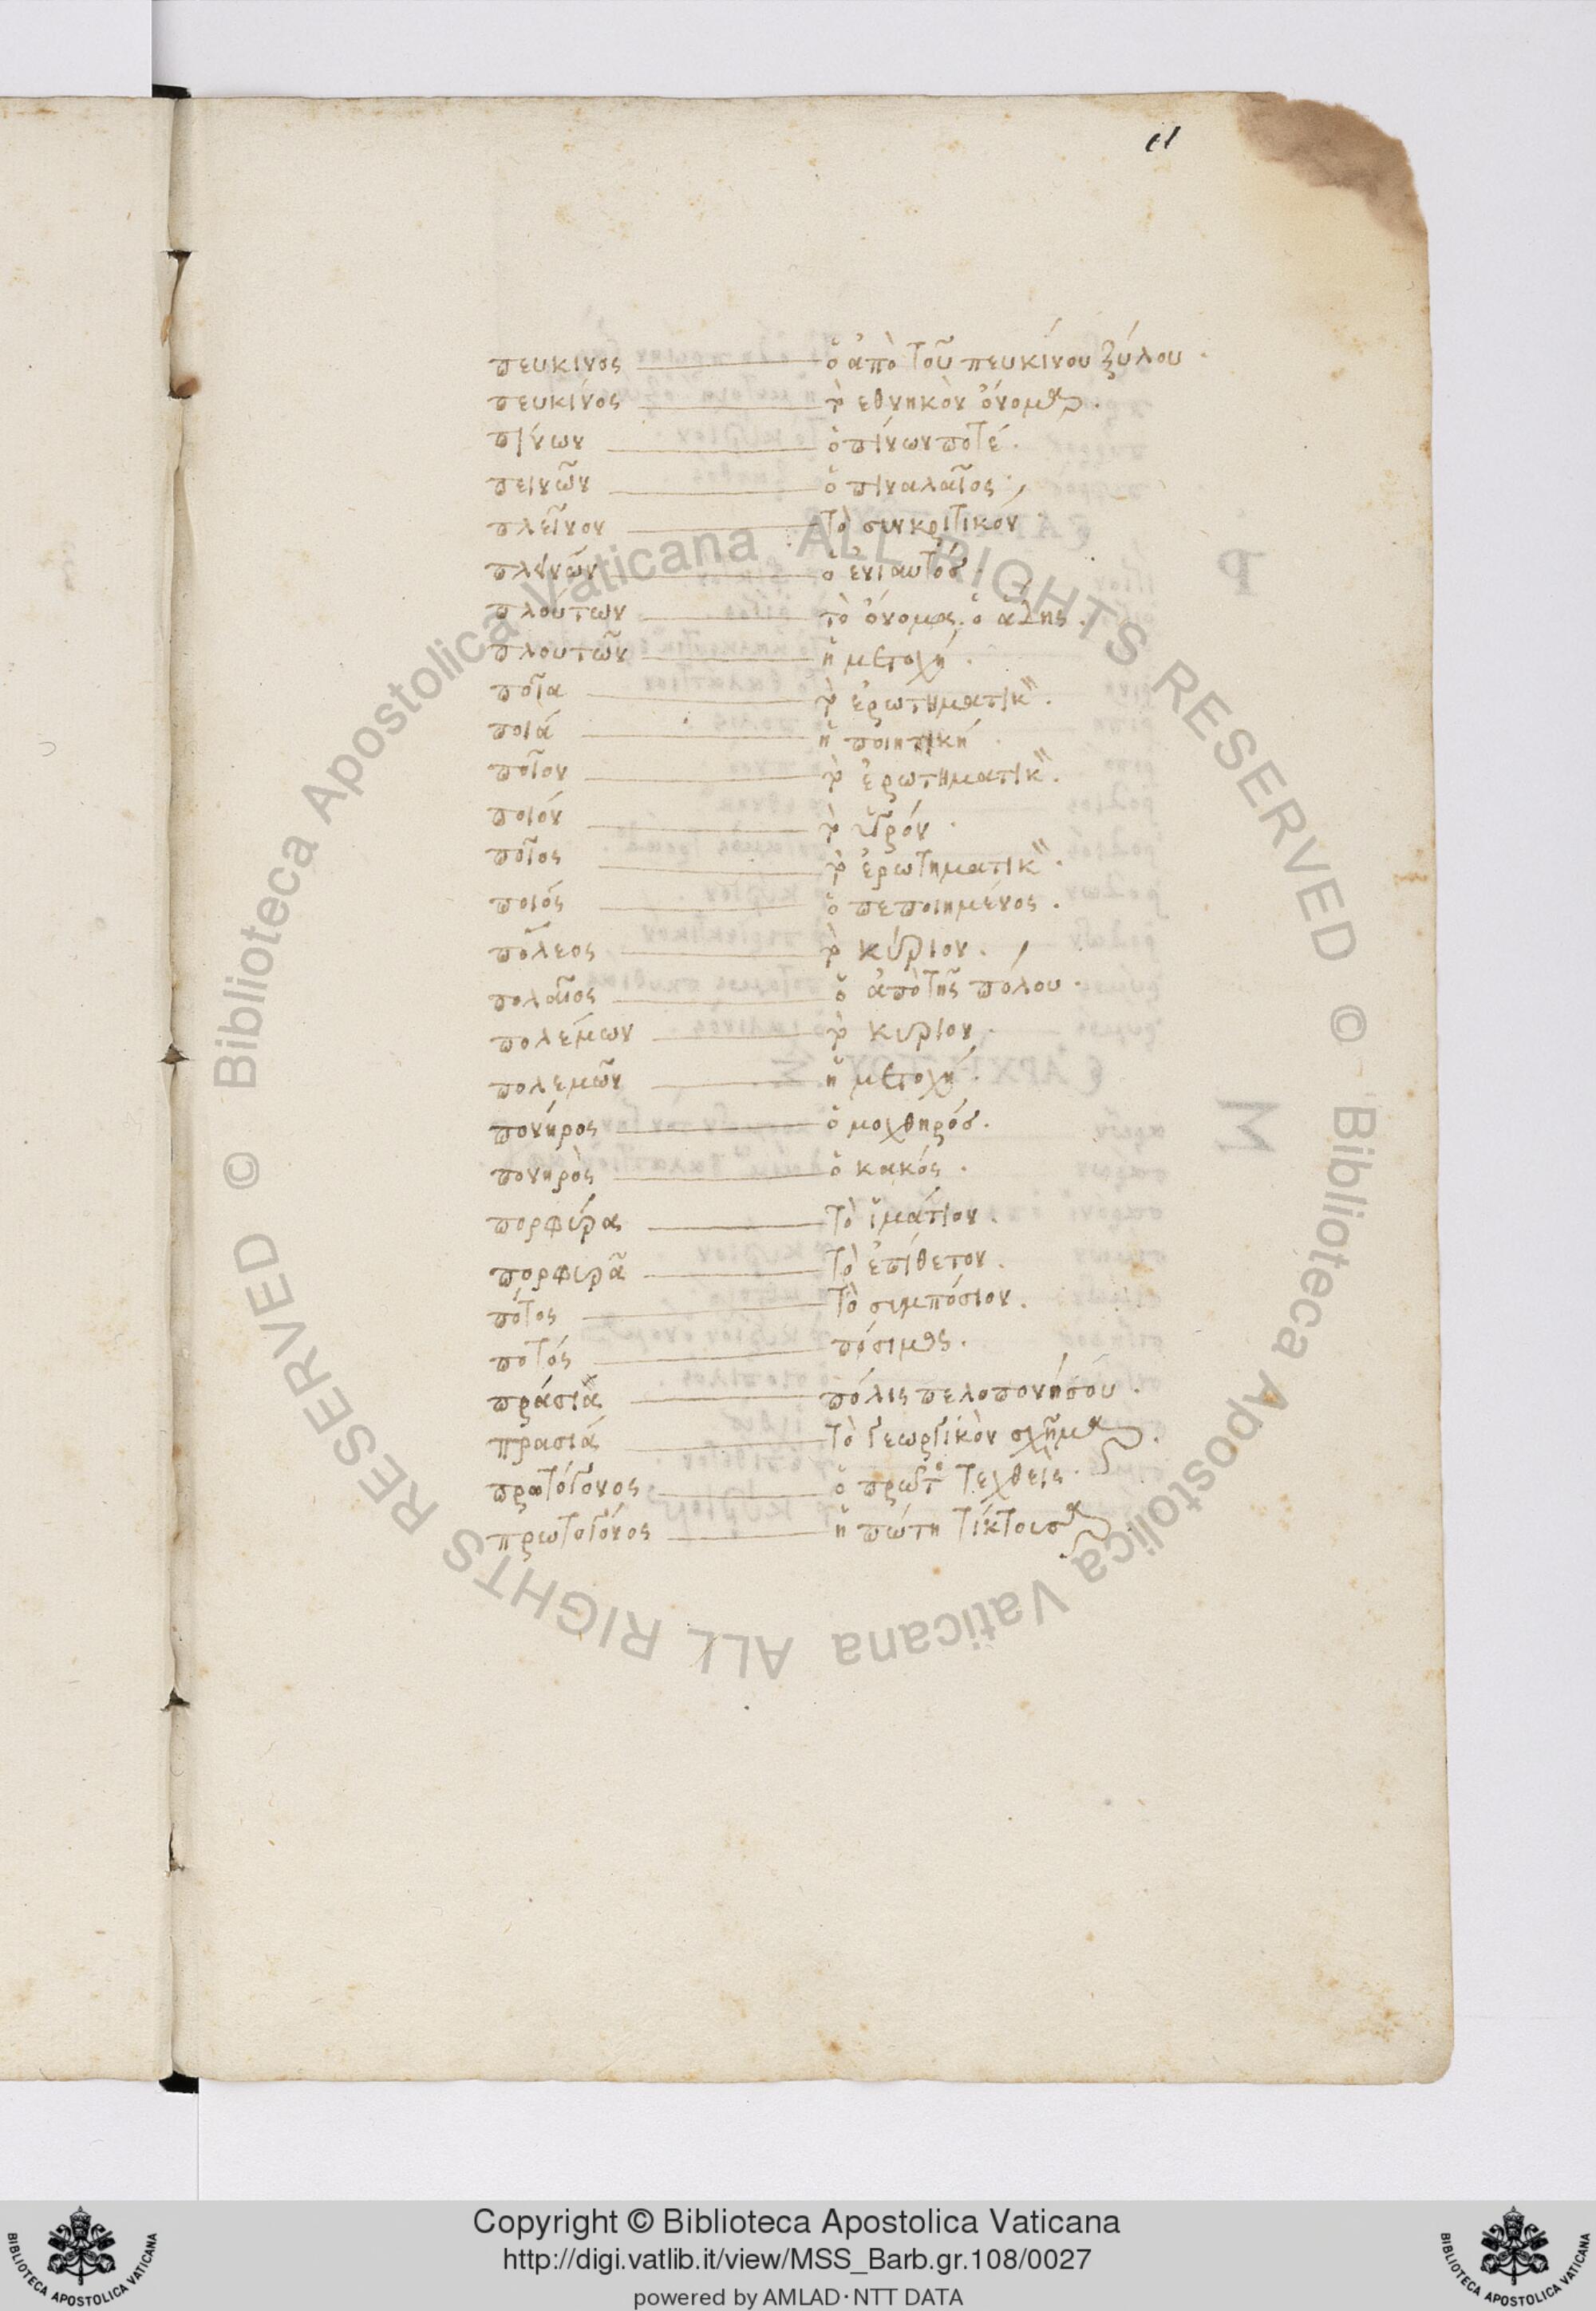 11
πευκινος ὁ ἀπὸ τοῦ πευκίνου ξύλου .
πευκίνος τὸ εθνηκὸν ὄνομα .
πίνων ὁ πίνων ποτέ .
πεινῶν ὁ πιναλαῖος .
πλεῖνον τὸ συνκριτικόν
πληνῶν ὁ ἐνιαυτός .
πλούτων τὸ ὄνομα . ὁ ἅδης .
πλουτῶν ἡ μετοχή .
ποῖα τὸ ἐρωτηματικ" .
ποιά ἡ ποιητική .
ποῖον τὸ ἐρωτηματικ" .
ποιόν τὸ
ποῖος τὸ ἐρωτηματικ" .
ποιός ὁ πεποιημένος .
πόλεος τὸ κύριον .
πολαῖος ὁ ἀπὸ τῆς πόλου .
πολέμων τὸ κυριον .
πολεμῶν ἡ μετοχή .
πονήρος ὁ μοχθηρός .
πονηρὸς ὁ κακός .
πορφύρας τὸ ἱμάτιον .
πορφυρᾶ τὸ ἐπίθετον .
πότος τὸ συμπόσιον .
ποτός πόσιμος .
πράσιας πόλις πελοπονήσου .
πρασιά τὸ γεωργικὸν σχῆμα .
πρωτότονος ὁ πρῶτο τεχθεὶς .
πρωτοτόνος ἡ πώτη τίκτουσα .
© Biblioteca Apostolica Vaticana ALL RIGHTS RESERVED
© Biblioteca Apostolica Vaticana ALL RIGHTS RESERVED
Copyright © Biblioteca Apostolica Vaticana
http://digi.vatlib.it/view/MSS_Barb.gr.108/0027
powered by AMLAD · NTT DATA
BIBLIOTECA APOSTOLICA VATICANA
BIBLIOTECA APOSTOLICA VATICANA